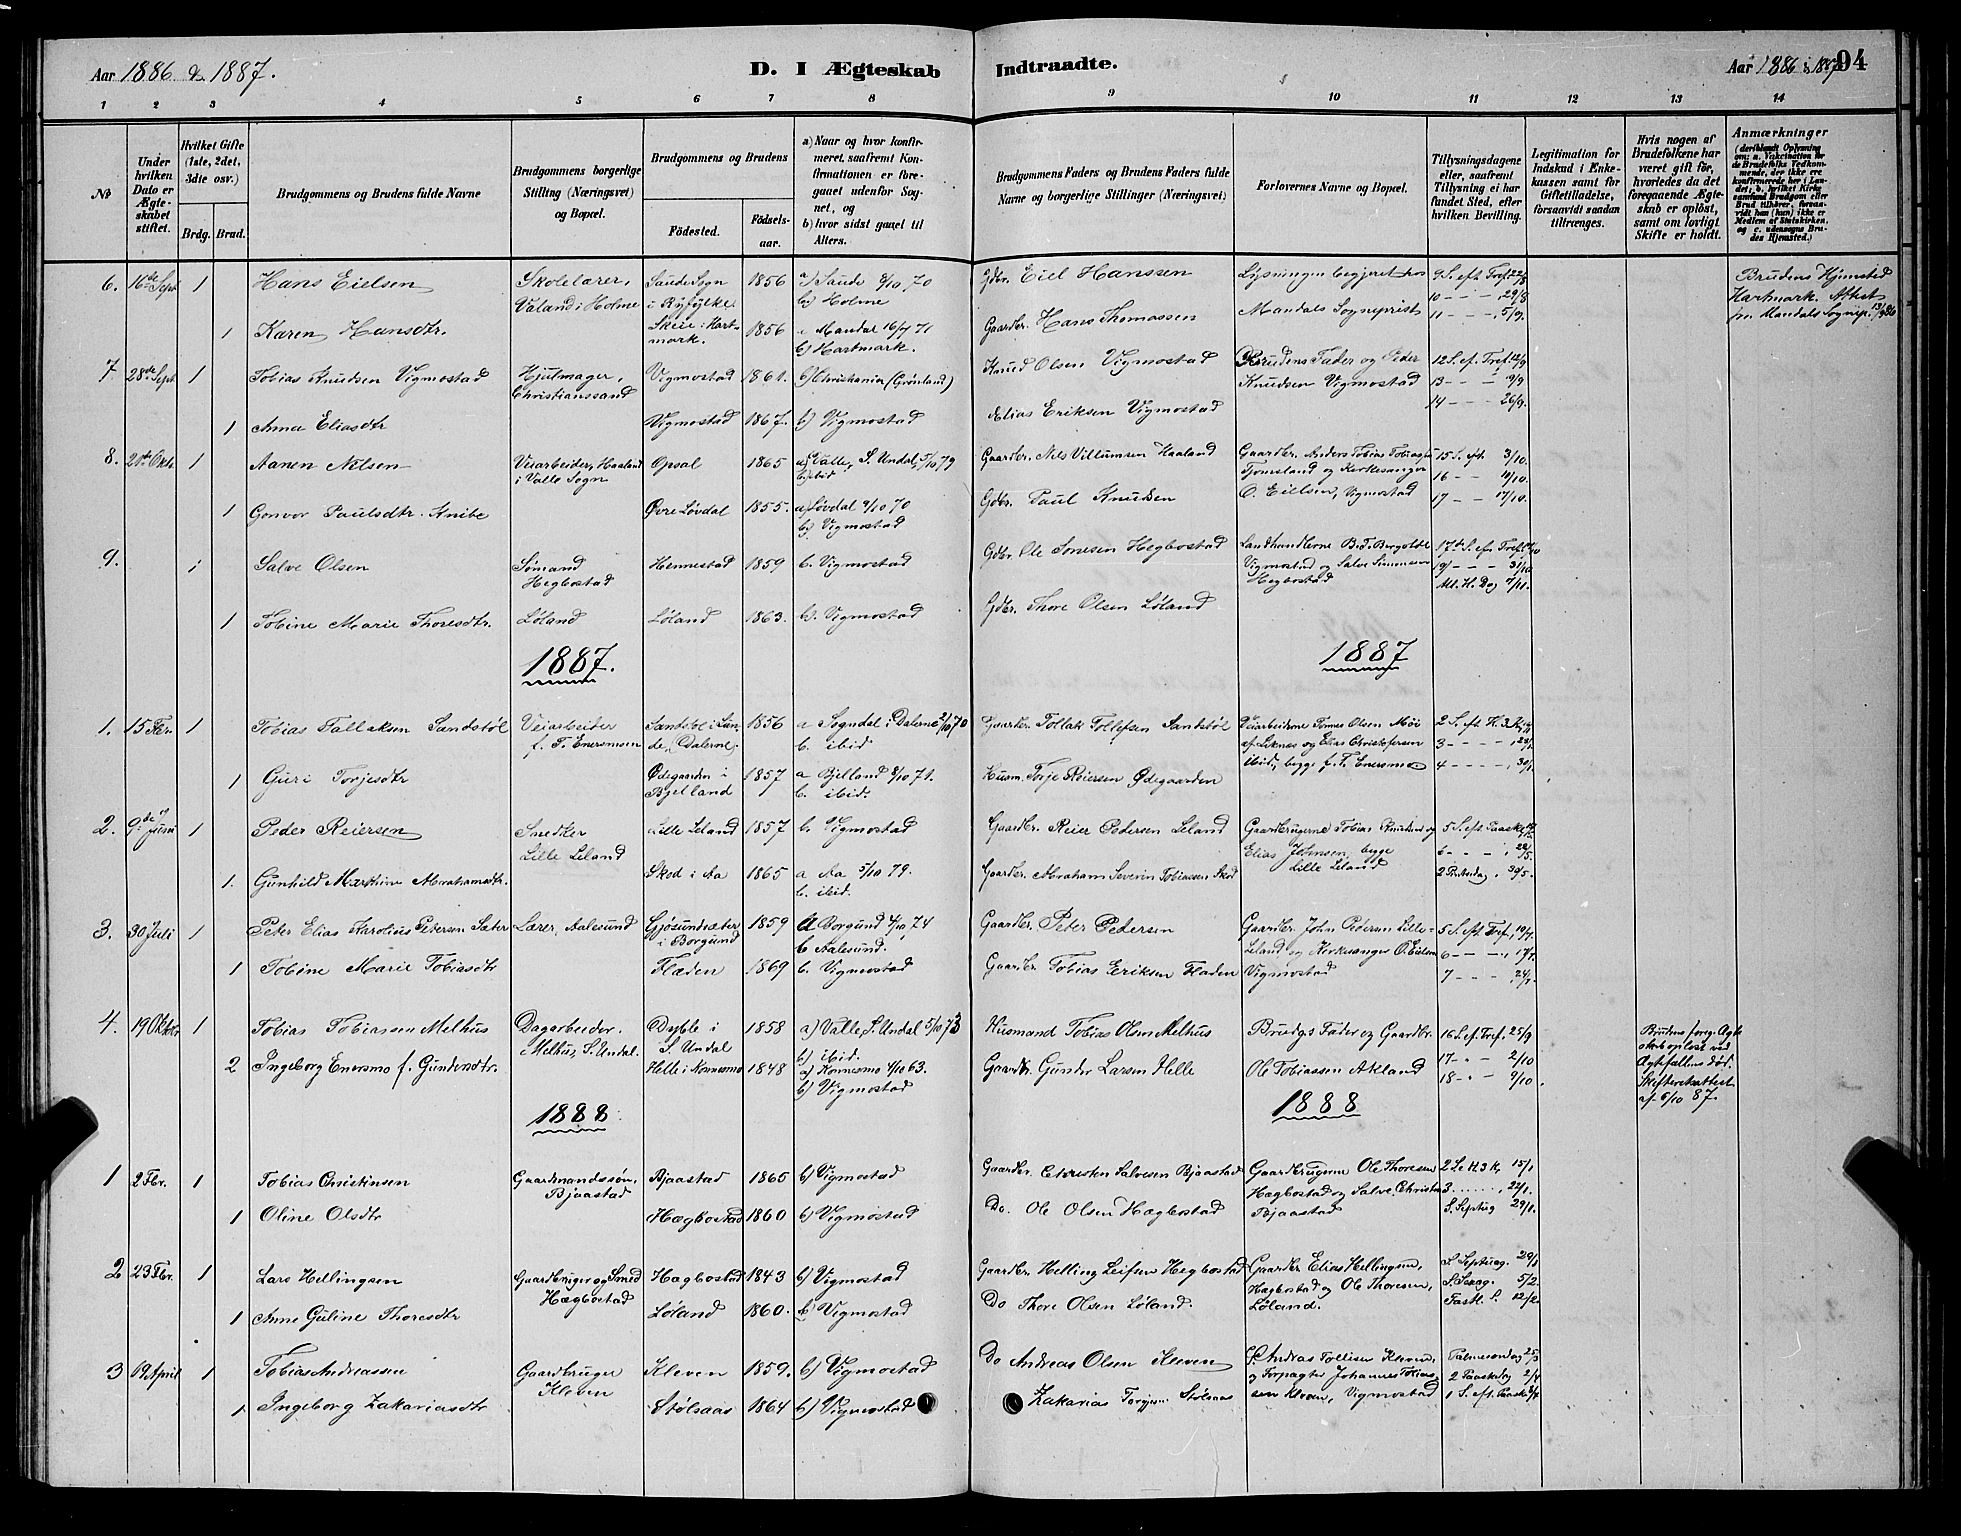 Aar 1886 & 1887.
D. I Ægteskab Indtraadte.
Aar 1886 & 1887 94
1 2 3 4 5 6 7 8 9 10 11 12 13 14
No
Under hvilken Dato er Ægteskabet stiftet.
Hvilket Gifte (1ste, 2det, 3die osv.)
Brdg. Brud.
Brudgommens og Brudens fulde Navne
Brudgommens borgerlige Stilling (Næringsvei) og Bopæl.
Brudgommens og Brudens
Födested. Födselsaar.
a) Naar og hvor konfirmeret, saafremt Konfirmationen er foregaaet udenfor Sognet, og
b) hvor sidst gaaet til Alters.
Brudgommens Faders og Brudens Faders fulde Navne og borgerlige Stillinger (Næringsvei)
Forlovernes Navne og Bopæl.
Tillysningsdagene eller, saafremt Tillysning ei har fundet Sted, efter hvilken Bevilling.
Legitimation for Indskud i Enkekassen samt for Giftetilladelse, forsaavidt saadan tiltrænges.
Hvis nogen af Brudefolkene har været gift før, hvorledes da det foregaaende Ægteskab er opløst, samt om lovligt Skifte er holdt.
Anmærkninger (deriblandt Oplysning om: a. Vakcination for de Brudefolks Vedkommende, der ikke ere konfirmerede her i Landet; b. hvilket Kirkesamfund Brudgom eller Brud tilhører, forsaavidt han (hun) ikke er Medlem af Statskirken, og c. udensogns Brudes Hjemsted.)
6. 16de Sept 1 Hans Eielsen Skolelærer, Valand i Holme Saude Sogn i Ryfylke 1856 a) Saude 8/10, 70 b) Holme Gdbr. Eiel Hanssen Lysningen begjæret hos Mandals Sogneprest 9 S. eft Tref 22/8 10 - - - 29/8 11 - - - 5/9. Brudens Hjemsted Hartmark. Attest fra Mandals Sognep. 13/9 86
1 Karen Hansdtr. Skeie i Hartmark. 1856 a Mandal 16/7 71 b) Hartmark. Gaardbr. Hans Thomassen
7 28de Sept. 1 Tobias Knudsen Vigmostad Hjulmager, Christianssand Vigmostad 1861. b) Christiania (Grønland) Knud Olsen Vigmostad Brudens Fader og Peder Knudsen Vigmostad 12 S. ef. Tref 12/9 13 - - - 19/9 14 - - - 26/9.
1 Anna Eliasdtr Vigmostad 1867. b) Vigmostad Elias Eriksen Vigmostad
8. 20de Okt. 1 Aanen Nilsen Veiarbeider, Haaland i Valle Sogn Opsal 1865 a) Valle, S. Undal, 5/10 79 b) ibid Gaardbr. Nils Villumsen Haaland Gaardbr. Anders Tobias Tobiass. Tjomsland og Kirkesanger O. Eielsen, Vigmostad 15 S. eft. 3/10. 16 - - 10/10. 17 - - 17/10.
1 Gonvor Paulsdtr. Knibe Øvre Løvdal 1855. a) Løvdal 9/10 70 b) Vigmostad Gdbr. Paul Knudsen
9. 1 Salve Olsen Sømand Hegbostad Hennestad 1859 b. Vigmostad Gdbr. Ole Hegbostad Landhandlerne B. T. Vigmostad og Salve Simonsen Hegbostad 17de S. ef. Tref. 31/10 All. H. Dag 7/11.
1 Tobine Marie Thoresdtr. Løland Løland 1863. b). Vigmostad Gdbr. Thore Olsen Løland
1887. 1887
1. 15 Febr. 1 Tobias Tallaksen Sandstøl Veiarbeider f. T. Enersmoen Sandstøl i Sunde, Dalerne. 1856 a Sogndal i Dalerne 2/10, 70 b. ibid Gaardbr. Tollak Tollefsen Sandstøl Veiarbeiderne Tomas Olsen Moi af Liknes og Elias Christofersen ibid, begge f. T. Enersmo 2 S. eft H. 3 K. 3 - - - 23/1 4 - - - 30/1.
1 Guri Torjesdtr Ødegaarden i Bjelland 1857 a Bjelland 8/10 71. b. ibid. Husm. Torje Reiersen Ødegaarden
2. 9de Juni 1 Peder Reiersen Snedker Lille Leland Lille Leland 1857 b. Vigmostad Gaardbr. Reier Pedersen Leland Gaardbrugerne Tobias Knudsen og Elias Johnsen, begge Lille Leland 5 S. eft Paaske 6 - - - 22/5. 2 Pintsdag, 30/5.
1. Gunhild Marthine Abrahamsdtr. Skod i Aa 1865 a Aa 5/10 79. b. ibid. Gaardbr. Abraham Severin Tobiassen Skod
3. 30 Juli 1 Peter Elias Karolius Petersen Sæter Lærer, Aalesund Gjøsundsæter i Borgund 1859 a Borgund 4/10, 74 b Aalesund. Gaardbr. Peter Pedersen Gaardbr. John Pedersen Lille-Leland og Kirkesanger O. Eielsen Vigmostad 5 S. eft. Tref. 10/7. 6 - - - 17/7 7 - - - 24/7
1 Tobine Marie Tobiasdtr Fladen 1869 b. Vigmostad Gaardbr. Tobias Eriksen Fladen
4. 19 Oktbr 1 Tobias Tobiassen Melhus Dagarbeider. Melhus, S. Undal. Dyble i S. Undal 1858 a) Valle, S. Undal 5/10 73 b) ibid. Husmand Tobias Olsen Melhus Brudgs Fader og Gaardbr. Ole Tobiassen Akland 16 S. ef. Tref. 25/9 17 - - 2/10 18 - - 9/10. Brudens foreg. Ægteskab opløst ved Ægtefællens død. Skifteretsattest af 6/10 87.
2 Ingeborg Enersmo f. Gundersdtr. Helle i Konnesmo 1848 a) Konnesmo 4/10 63. b) Vigmostad Gaardbr. Gunder Larsen Helle
1888. 1888
1 2 Fbr. 1 Tobias Christensen Gaardmandssøn, Bjaastad Bjaastad 1865 b) Vigmostad Gaardbr. Christen Salvesen Bjaastad Gaardbrugerne Ole Thoresen Hægbostad og Salve Christens. Bjaastad 2 S e H 3 K, 15/1 3 . . . . . . , 22/1. S. Septuag 29/1.
1 Oline Olsdtr Hægbostad 1860 b) Vigmostad Do. Ole Olsen Hægbostad
2 23 Fbr. 1 Lars Hellingsen Gaardbruger og Smed Hægbostad Hægbostad 1843 b) Vigmostad Gaardbr. Helling Leifsen Hegbostad Gaardbr. Elias Hellingsen, Hægbostad og Ole Thoresen, Løland. S. Septuag. 29/1 S. Sexag. 5/2. Fastl. S. 12/2.
1 Anne Guline Thoresdtr Løland 1860. b) Vigmostad Do Thore Olsen Løland.
3 19 April 1 Tobias Andreassen Gaardbruger Kleven Kleven 1859. b) Vigmostad Do Andreas Olsen Kleven Andreas Tollisen Kleven, og Forpagter Johannes Tobiassen Kleven, Vigmostad Palmesøndag 25/3 2 Paaskedag 2/4 1 S. eft. Paaske 8/4
1 Ingeborg Zakariasdtr Stølsaas 1864 b) Vigmostad Zakarias Stølsaas